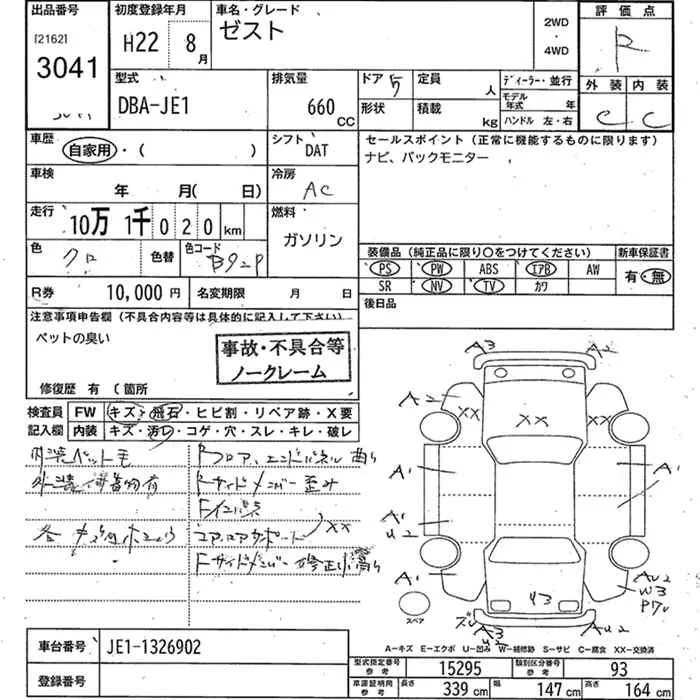 出品番号
[2162]
3041
初度登録年月
H22 8月
車名・グレード
ゼスト
2WD
・
4WD
評価点
R
外装 内装
C C
型式
DBA-JE1
排気量
660 CC
ドア 5
定員 人
形状
積載 kg
ディーラー・並行
モデル年式 年
ハンドル 左・右
車歴
自家用・( )
シフト
DAT
セールスポイント (正常に機能するものに限ります)
ナビ、バックモニター
車検
年 月( 日)
冷房
AC
走行
10万 1千 0 2 0 km
燃料
ガソリン
色
クロ
色替
色コード
B92P
装備品 (純正品に限り○をつけてください)
新車保証書
PS PW ABS エアB AW
有・無
SR NV TV カワ
R券 10,000 円
名変期限 月 日
後日品
注意事項申告欄 (不具合内容等は具体的に記入して下さい)
ペットの臭い
事故・不具合等
ノークレーム
修復歴 有 ( 箇所
検査員
記入欄
FW キズ・飛石・ヒビ割・リペア跡・X要
内装 キズ・汚レ・コゲ・穴・スレ・キレ・破レ
内装ペット毛
外装 付着物有
Rフロア、エンドパネル 曲り
Rサイドメンバー 歪み
コアロアサポート XX
Fサイドメンバー 修正
A3
A2
A2
XX
XX
XX
A1
A1
A1
A1
U2
A1
AU2
W3
Y3
A3
U2
AU2
スペア
A-キズ E-エクボ U-凹み W-補修跡 S-サビ C-腐食 XX-交換済
車台番号 JE1-1326902
登録番号
型式指定番号 参考 15295
類別区分番号 参考 93
車庫証明用 参考
長さ 339 cm
幅 147 cm
高さ 164 cm